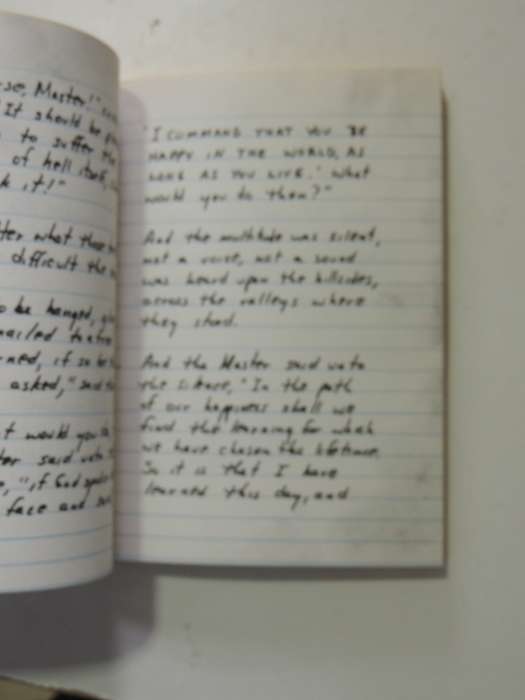 se, Master!"
It should be
to suffer the
of hell itself,
k it!"
ter what
difficult the
o be hanged,
nailed to a tree
ned, if so be
asked," said
t would you
ter said unto
, "if God spoke
face and said
'I COMMAND THAT YOU BE
HAPPY IN THE WORLD, AS
LONG AS YOU LIVE.' What
would you do then?"
And the multitude was silent,
not a voice, not a sound
was heard upon the hillsides,
across the valleys where
they stood.
And the Master said unto
the silence, "In the path
of our happiness shall we
find the learning for which
we have chosen this lifetime.
So it is that I have
learned this day, and